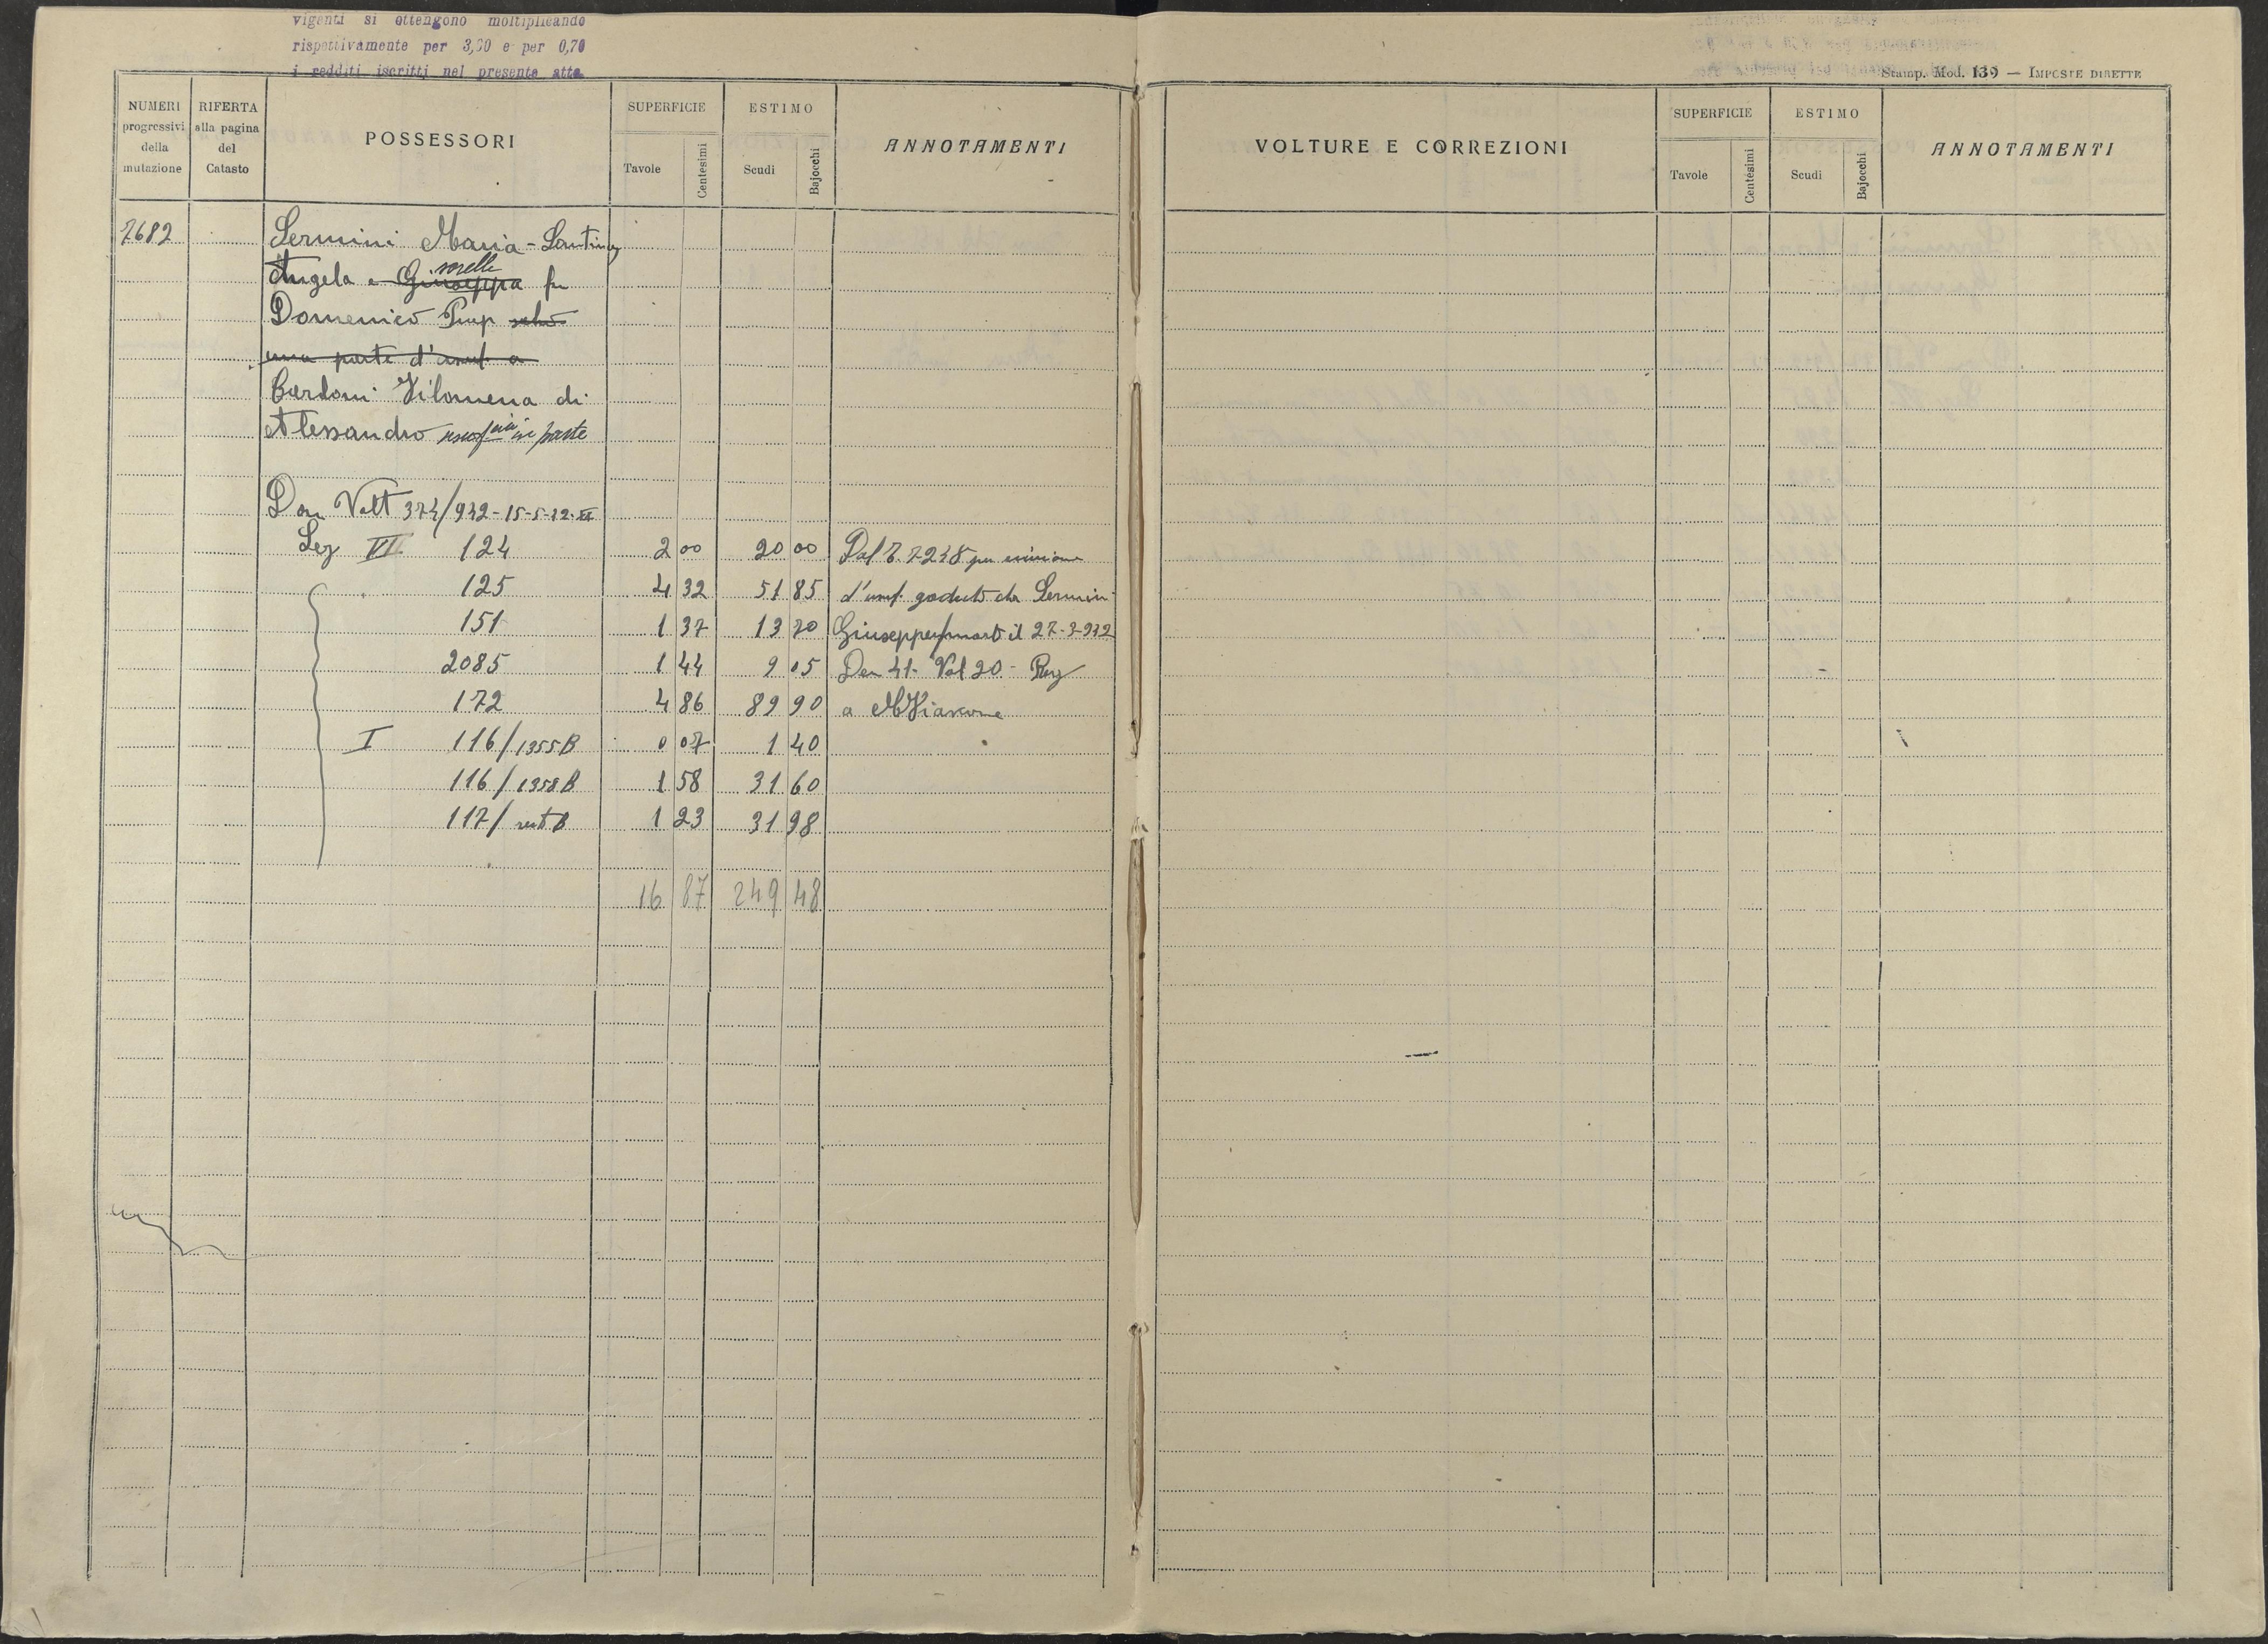 vigenti si ottengono moltiplicando
rispettivamente per 3,00 e per 0,70
i redditi iscritti nel presente atto
Stamp. Mod. 139 — IMPOSTE DIRETTE
NUMERI progressivi della mutazione
RIFERTA alla pagina del Catasto
POSSESSORI
SUPERFICIE
Tavole Centesimi
ESTIMO
Scudi Bajocchi
ANNOTAMENTI
VOLTURE E CORREZIONI
SUPERFICIE
Tavole Centesimi
ESTIMO
Scudi Bajocchi
ANNOTAMENTI
7682 Sermini Maria-Santina
sorelle
Angela e Giuseppa fu
Domenico Prop salvo
una parte d'usuf. a
Cardoni Filomena di
Alessandro in parte
Dom Volt 374/932-15-5-32-
Sez VII 124 2 00 20 00 Dal
125 4 32 51 85 d'usuf. goduto da Sermini
151 1 37 13 70 Giuseppe mort il 27-3-932
2085 1 44 9 05 Den 41- Vol 20-
172 4 86 89 90 a
I 116/1355B 0 07 1 40
116/1358B 1 58 31 60
117/rest.B 1 23 31 98
16 87 249 48